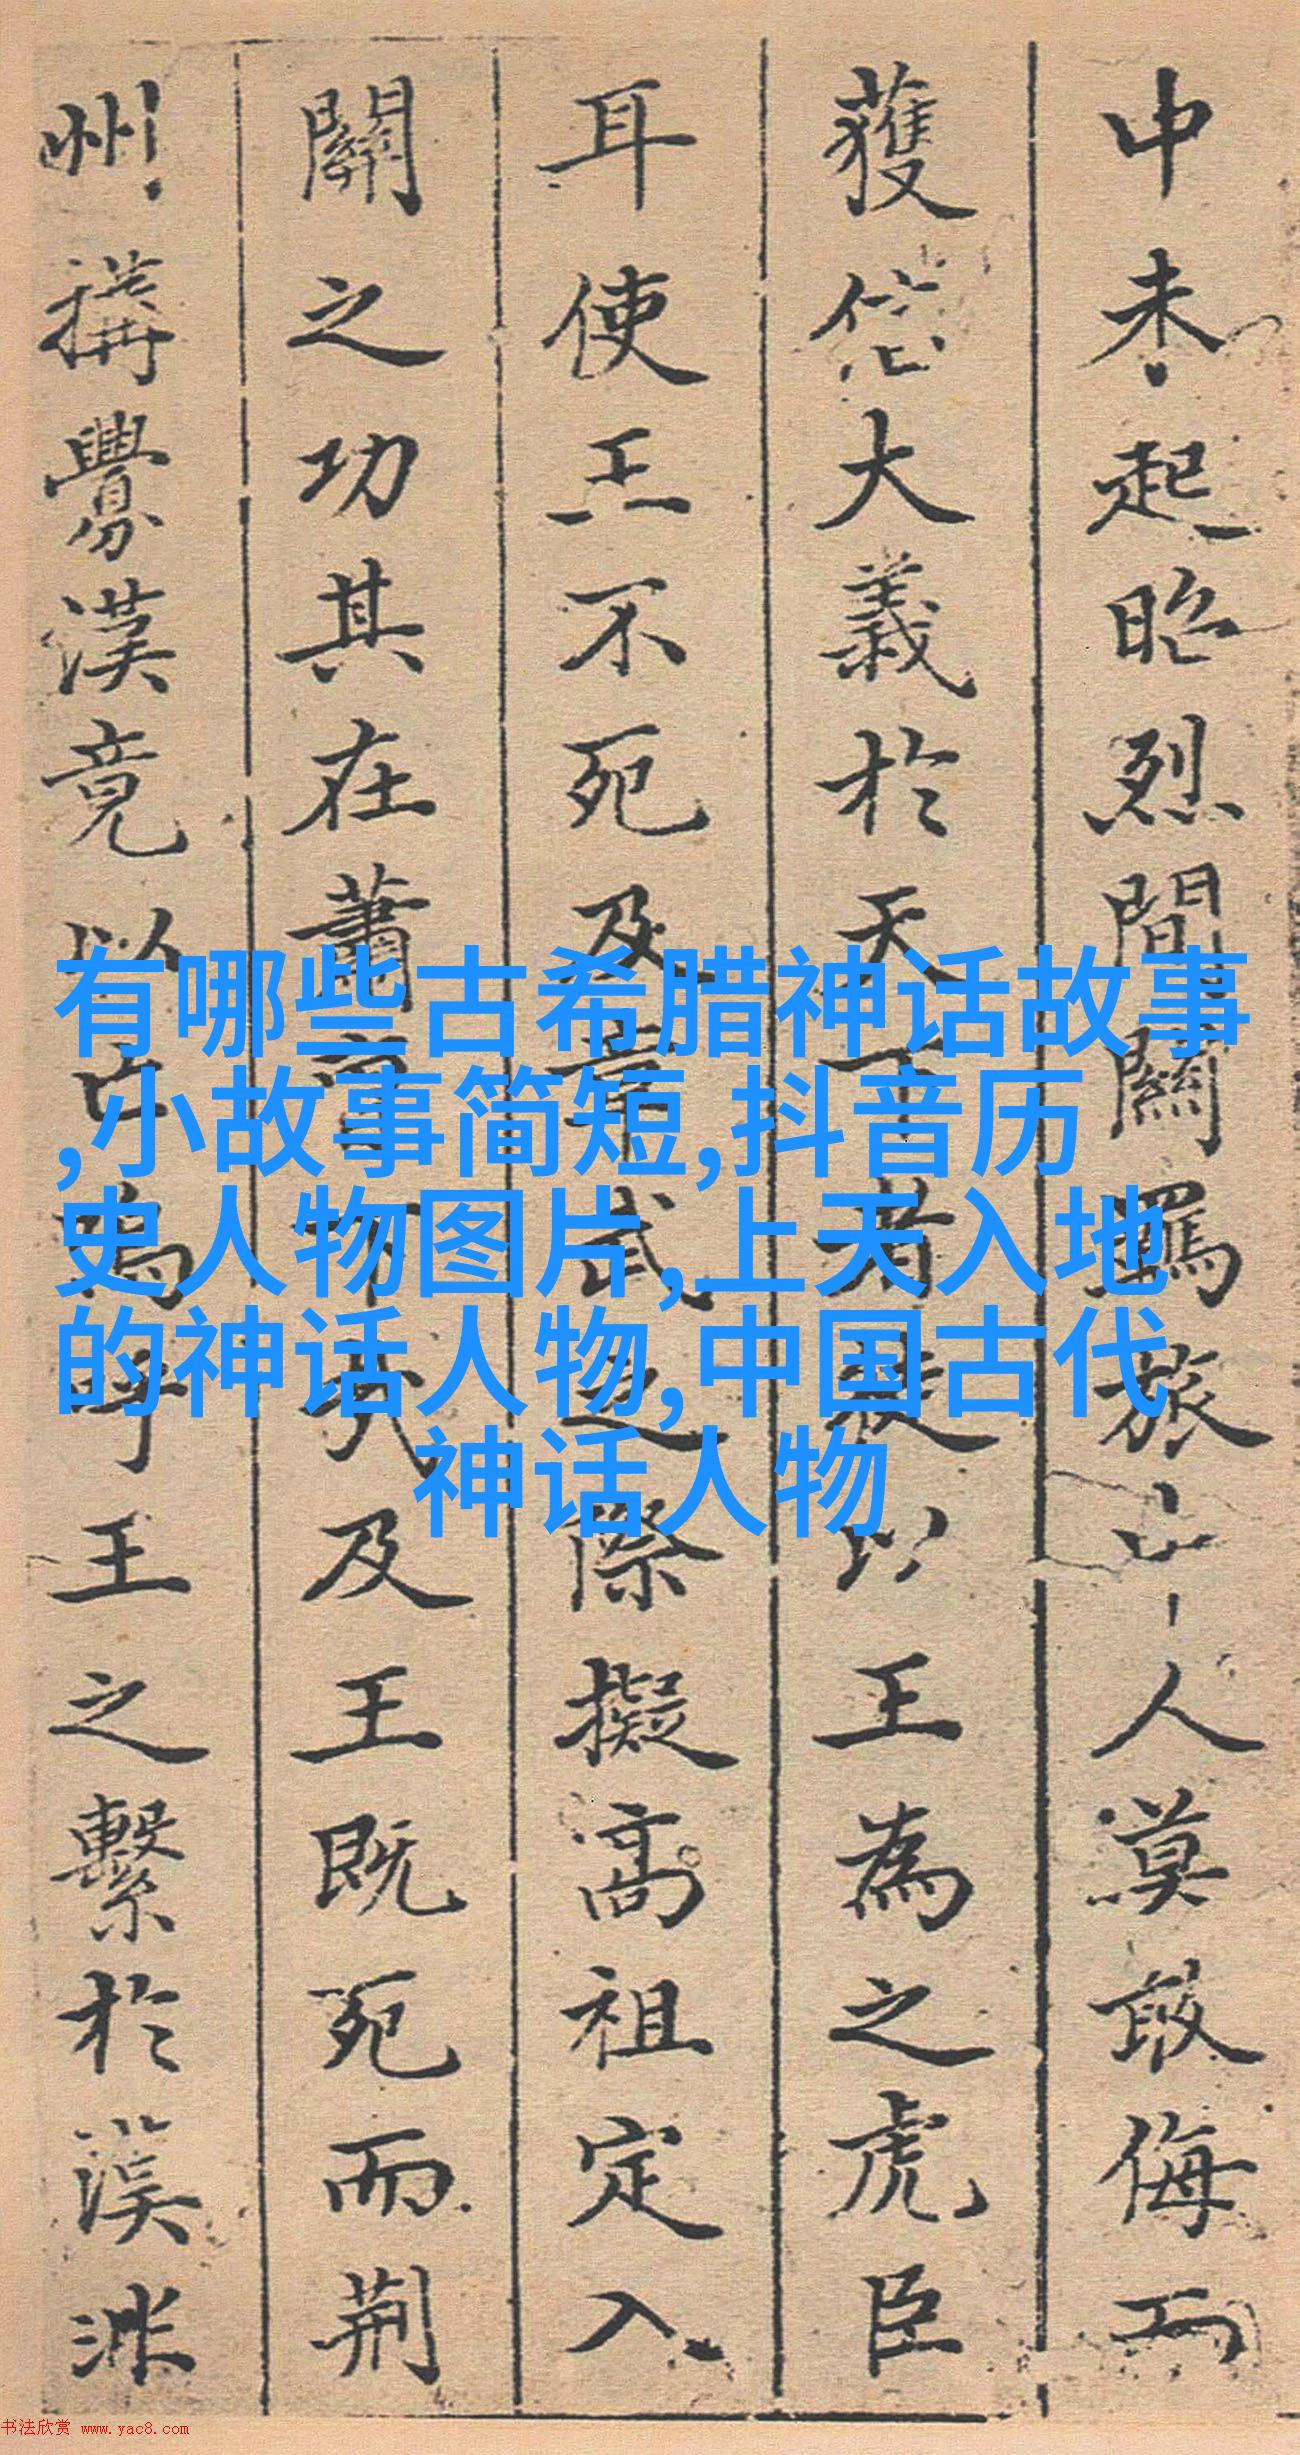 中未起昭烈間關羈旅人莫敢侮而
獲信大義於天下者徒以王為之虎臣
耳使王不死及章武之際擬高祖定入
關之功其在蕭及王既死而荊
州搆釁漢竟以亡嗚呼王之繫於漢
有哪些古希腊神话故事
,小故事简短,抖音历
史人物图片,上天入地
的神话人物,中国古代
神话人物
书法欣赏 www.yac8.com